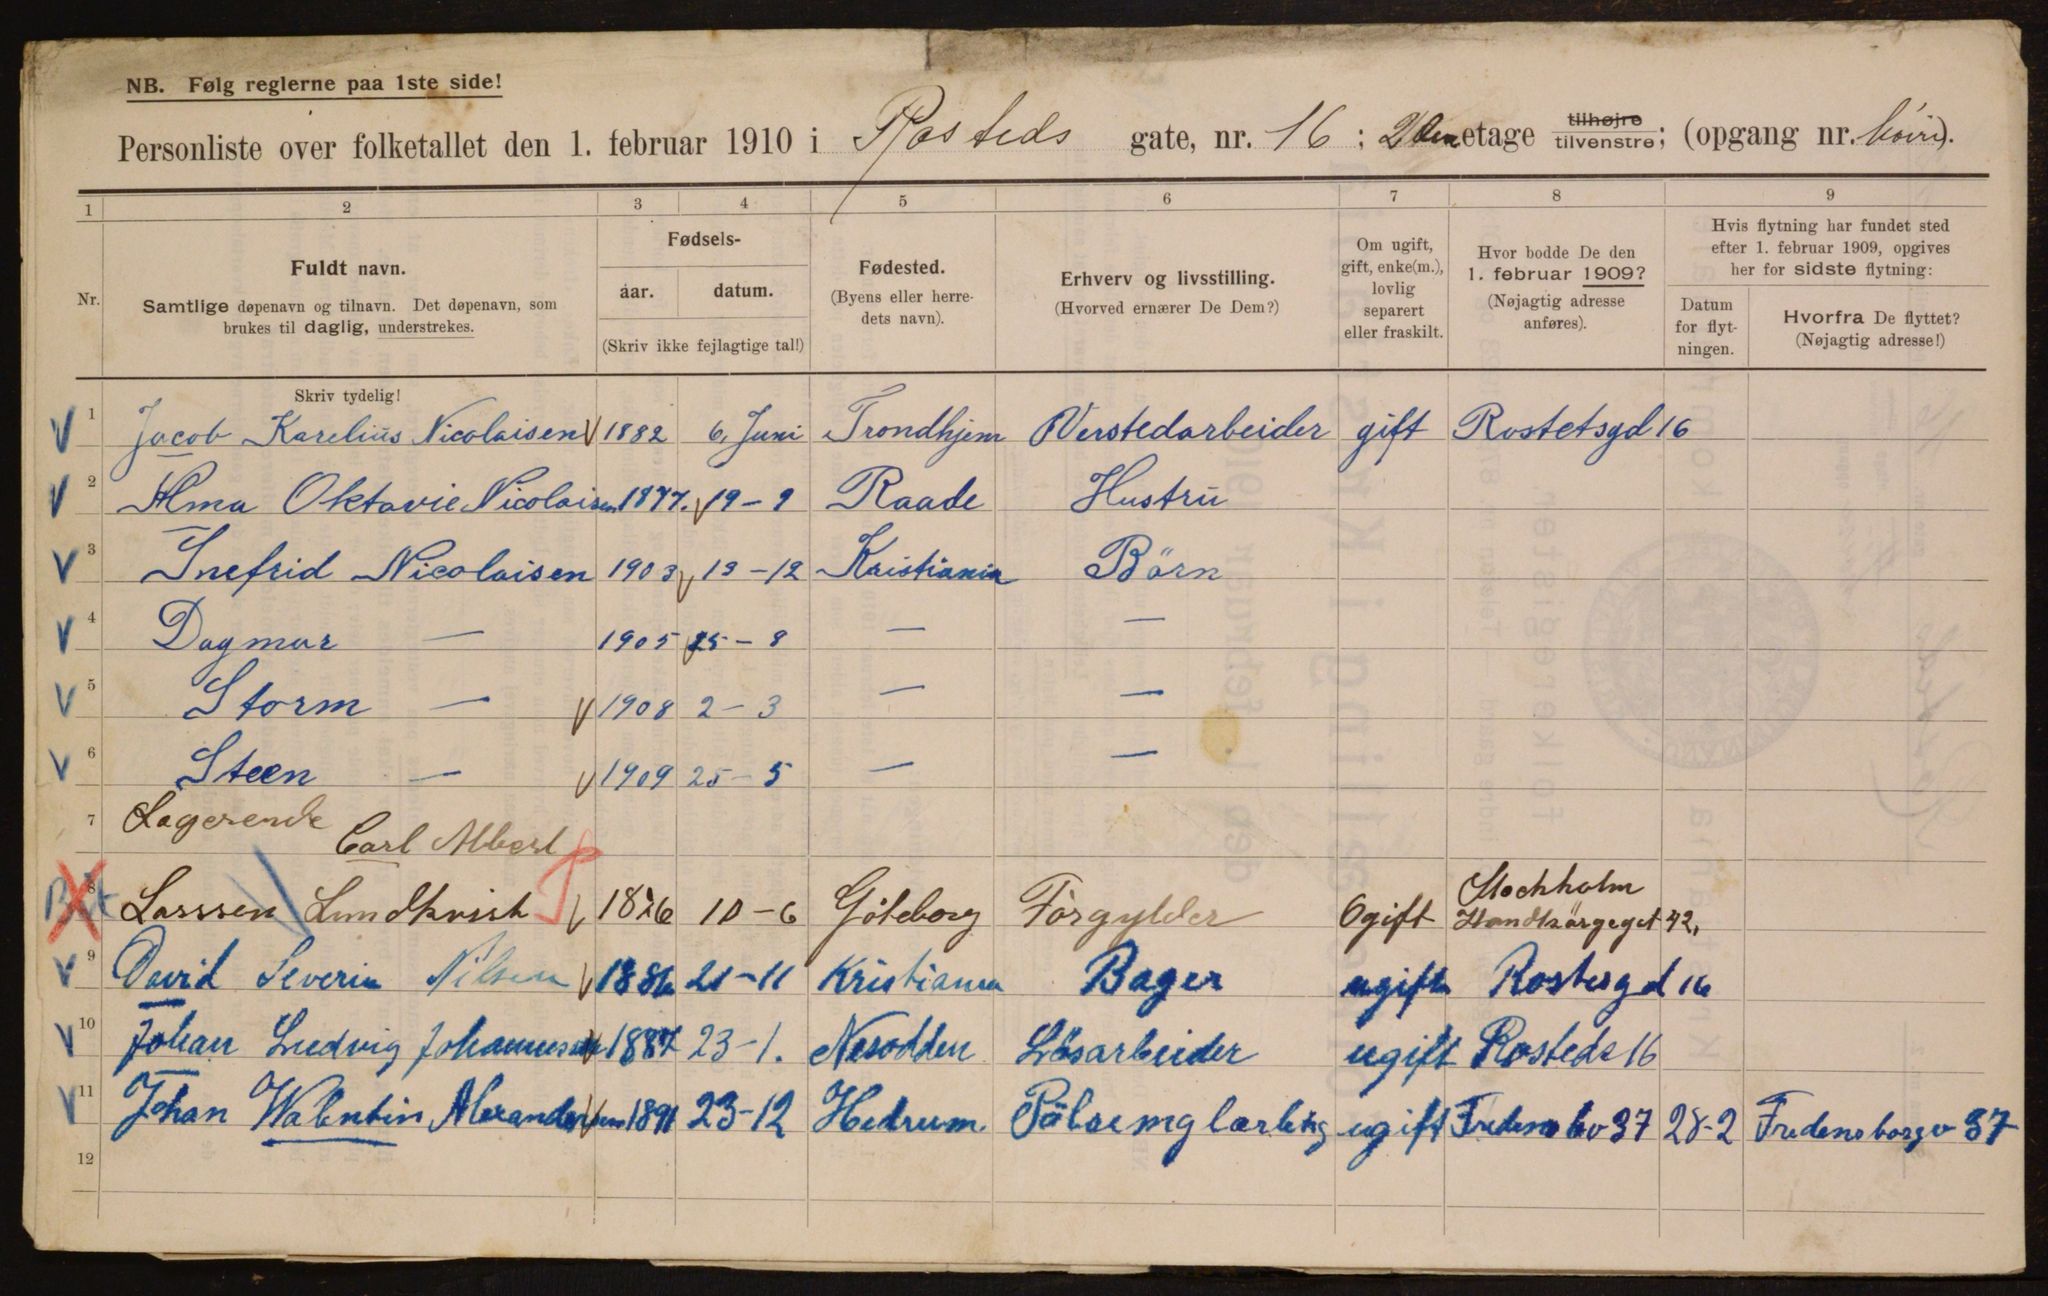 NB. Følg reglerne paa 1ste side!
Personliste over folketallet den 1. februar 1910 i Rosteds gate, nr. 16 ; 2den etage tilhøjre tilvenstre; (opgang nr. ).
1 2 3 4 5 6 7 8 9
Nr.
Fuldt navn.
Samtlige døpenavn og tilnavn. Det døpenavn, som
brukes til daglig, understrekes.
Fødsels-
aar. datum.
(Skriv ikke fejlagtige tal!)
Fødested.
(Byens eller herre-
dets navn).
Erhverv og livsstilling.
(Hvorved ernærer De Dem?)
Om ugift,
gift, enke(m.),
lovlig
separert
eller fraskilt.
Hvor bodde De den
1. februar 1909?
(Nøjagtig adresse
anføres).
Hvis flytning har fundet sted
efter 1. februar 1909, opgives
her for sidste flytning:
Datum
for flyt-
ningen.
Hvorfra De flyttet?
(Nøjagtig adresse!)
Skriv tydelig!
1 Jacob Karelius Nicolaisen 1882 6. Juni Trondhjem Verstedarbeider gift Rostetsgd 16
2 Alma Oktavie Nicolaisen 1877. 19-9 Raade Hustru
3 Inefrid Nicolaisen 1903 13-12 Kristiania Börn
4 Dagmar — 1905 25-8 — —
5 Storm — 1908 2-3 — —
6 Steen — 1909 25-5 — —
7 Logerende
Carl Albert
8 Larssen Lundkvist 1876 10-6 Göteborg Förgylder Ogift Stockholm
42,
9 David Severin Nilsen 1886 21-11 Kristiania Bager ugift Rostesgd 16
10 Johan Ludvig Johannesen 1887 23-1. Nesodden Lösarbeider ugift Rosteds 16
11 Johan Walentin Alexandersen 1891 23-12 Hedrum Pölsemg lærling ugift Fredensbv 37 28-2 Fredensborgv 37
12